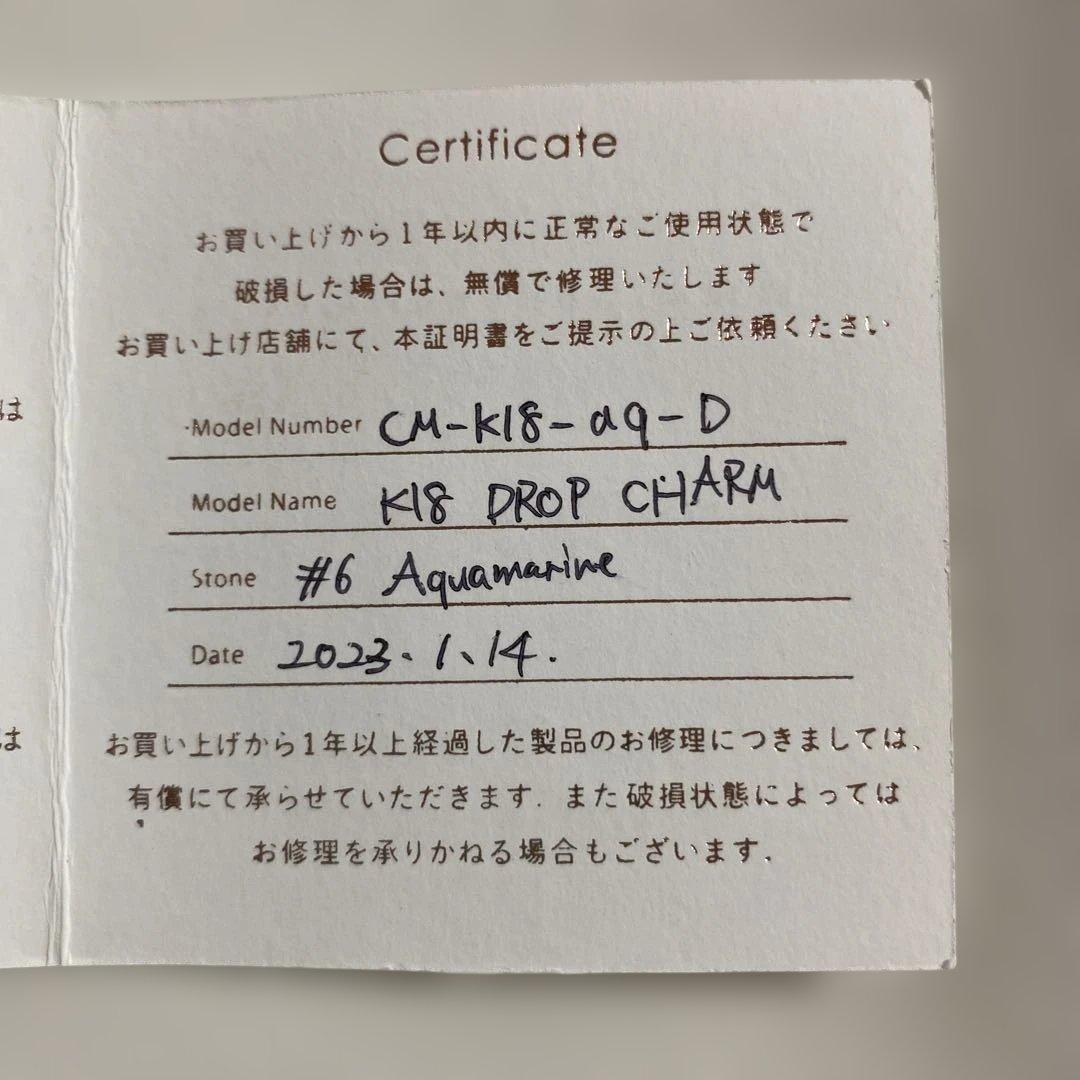 Certificate
お買い上げから1年以内に正常なご使用状態で
破損した場合は、無償で修理いたします
お買い上げ店舗にて、本証明書をご提示の上ご依頼ください
Model Number CM-K18-aq-D
Model Name K18 DROP CHARM
Stone #6 Aquamarine
Date 2023.1.14.
お買い上げから1年以上経過した製品のお修理につきましては、
有償にて承らせていただきます. また破損状態によっては
お修理を承りかねる場合もございます.
は
は